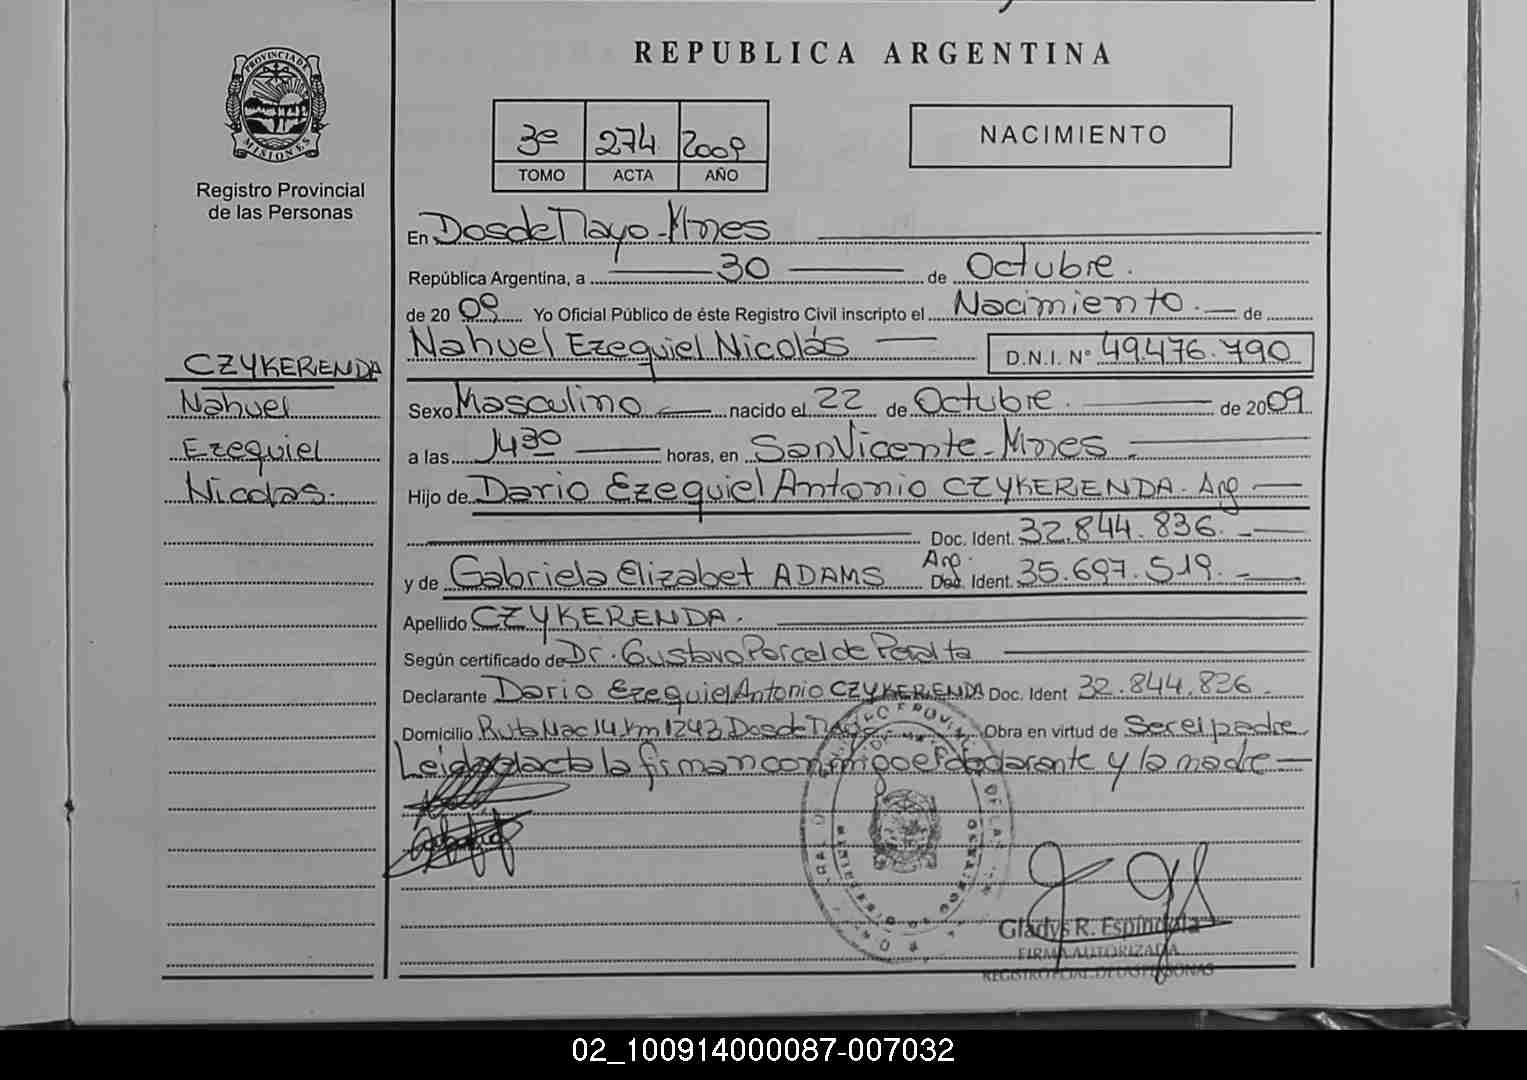 REPUBLICA ARGENTINA
PROVINCIA DE
MISIONES
Registro Provincial
de las Personas
3º 274 2009
TOMO ACTA AÑO
NACIMIENTO
En Dos de Mayo - Mnes
República Argentina, a 30 de Octubre.
de 2009 Yo Oficial Público de éste Registro Civil inscripto el Nacimiento. de
Nahuel Ezequiel Nicolás D.N.I. Nº 49.476.790
CZYKERENDA
Nahuel
Ezequiel
Nicolas.
Sexo Masculino nacido el 22 de Octubre. de 2009
a las 14 30 horas, en San Vicente - Mnes
Hijo de Dario Ezequiel Antonio CZYKERENDA. Arg
Doc. Ident. 32.844.836.
y de Gabriela Elizabet ADAMS Arg. Doc. Ident. 35.697.519.
Apellido CZYKERENDA.
Según certificado de Dr. Gustavo Porcel de Peralta
Declarante Dario Ezequiel Antonio CZYKERENDA Doc. Ident 32.844.836.
Domicilio Ruta Nac 14 Km 1243 Dos de Mayo Obra en virtud de Ser el padre
Leida el acta la firman conmigo el declarante y la madre
Gladys R. Espindola
FIRMA AUTORIZADA
REGISTRO PCIAL. DE LAS PERSONAS
02_100914000087-007032